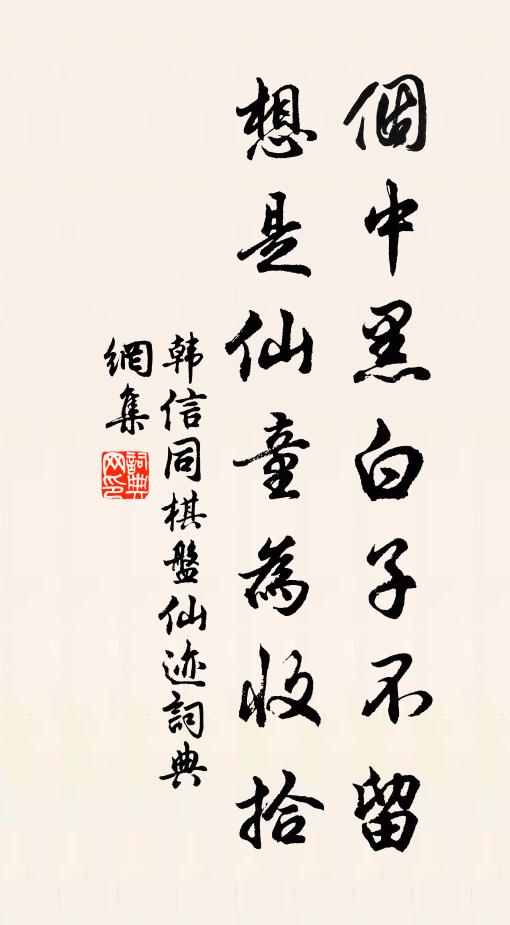 個中黑白子不留
想是仙童為收拾
韩信同棋盤仙迹詞典
網集
詞典網印